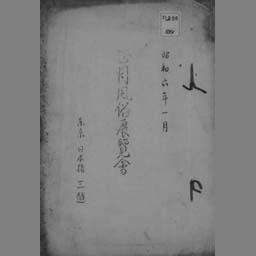 昭和六年一月
風俗展覧会
東京 日本橋 三越